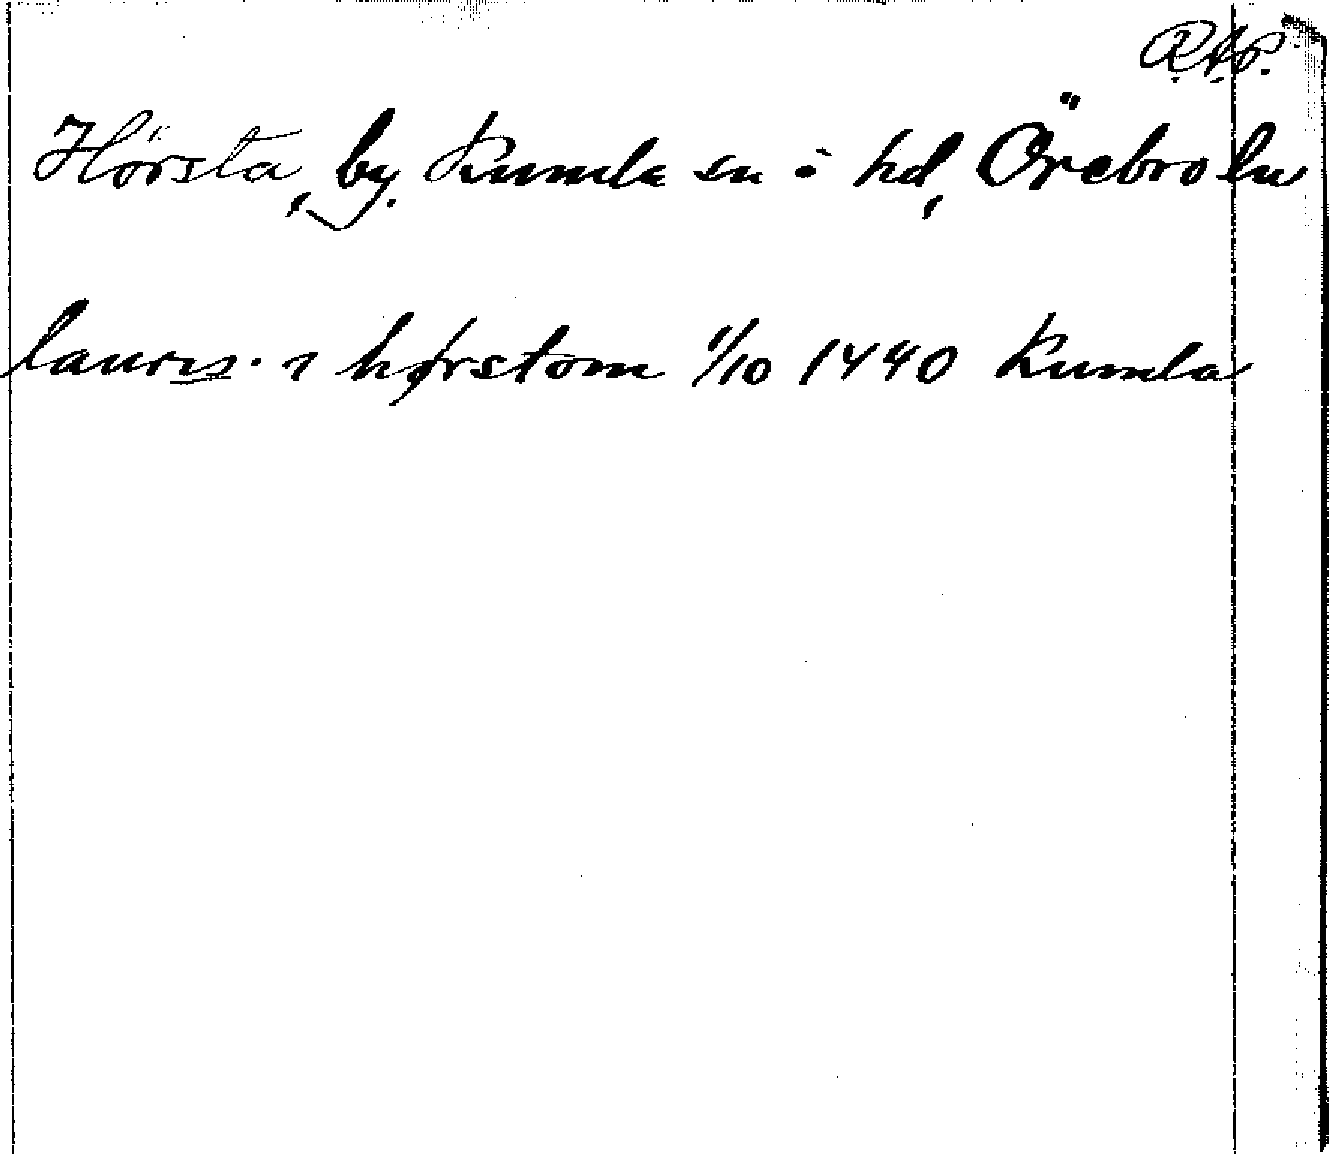 R.A.P.
Hörsta, by. Kumla sn o hd, Örebro län
laurı̄s. ı hørstom 1/10 1440 Kumla